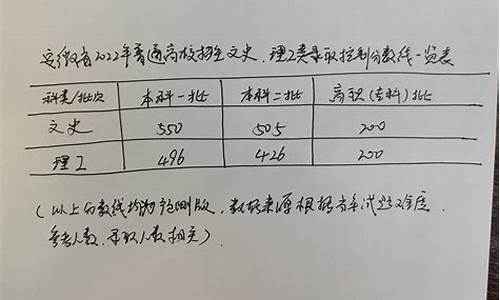 安徽省2022年普通高校招生文史、理工类录取控制分数线一览表
科类/批次 本科一批 本科二批 高职(专科)批
文史 550 505 200
理工 496 426 200
(以上分数线均为预测版,数据来源根据当年试题难度、
参考人数、录取人数相关)